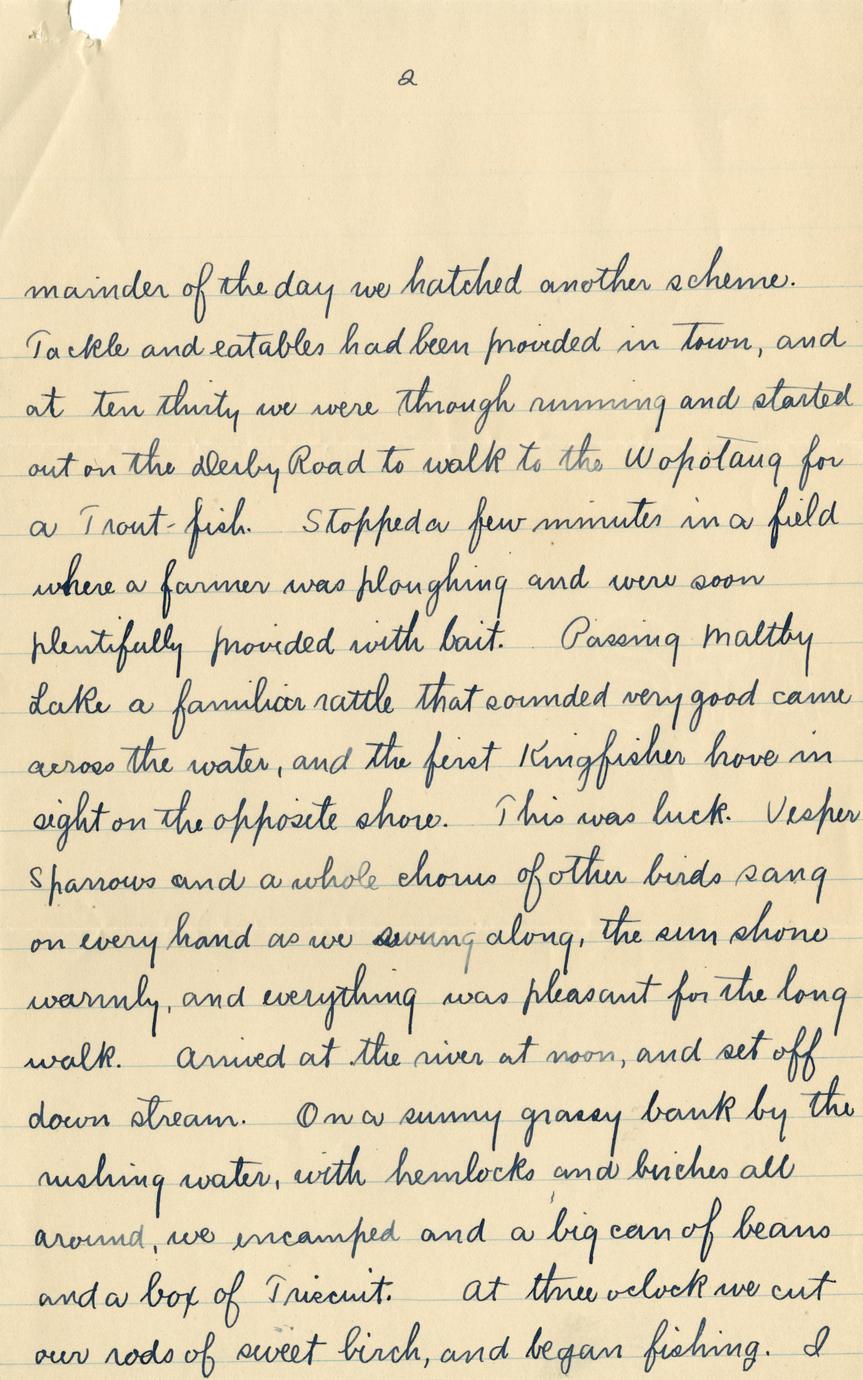 2
mainder of the day we hatched another scheme.
Tackle and eatables had been provided in town, and
at ten thirty we were through running and started
out on the Derby Road to walk to the Wopotaug for
a Trout-fish. Stopped a few minutes in a field
where a farmer was ploughing and were soon
plentifully provided with bait. Passing Maltby
Lake a familiar rattle that sounded very good came
across the water, and the first Kingfisher hove in
sight on the opposite shore. This was luck. Vesper
Sparrows and a whole chorus of other birds sang
on every hand as we swung along, the sun shone
warmly, and everything was pleasant for the long
walk. Arrived at the river at noon, and set off
down stream. On a sunny grassy bank by the
rushing water, with hemlocks and birches all
around, we encamped and a big can of beans
and a box of Triscuit. At three oclock we cut
our rods of sweet birch, and began fishing. I